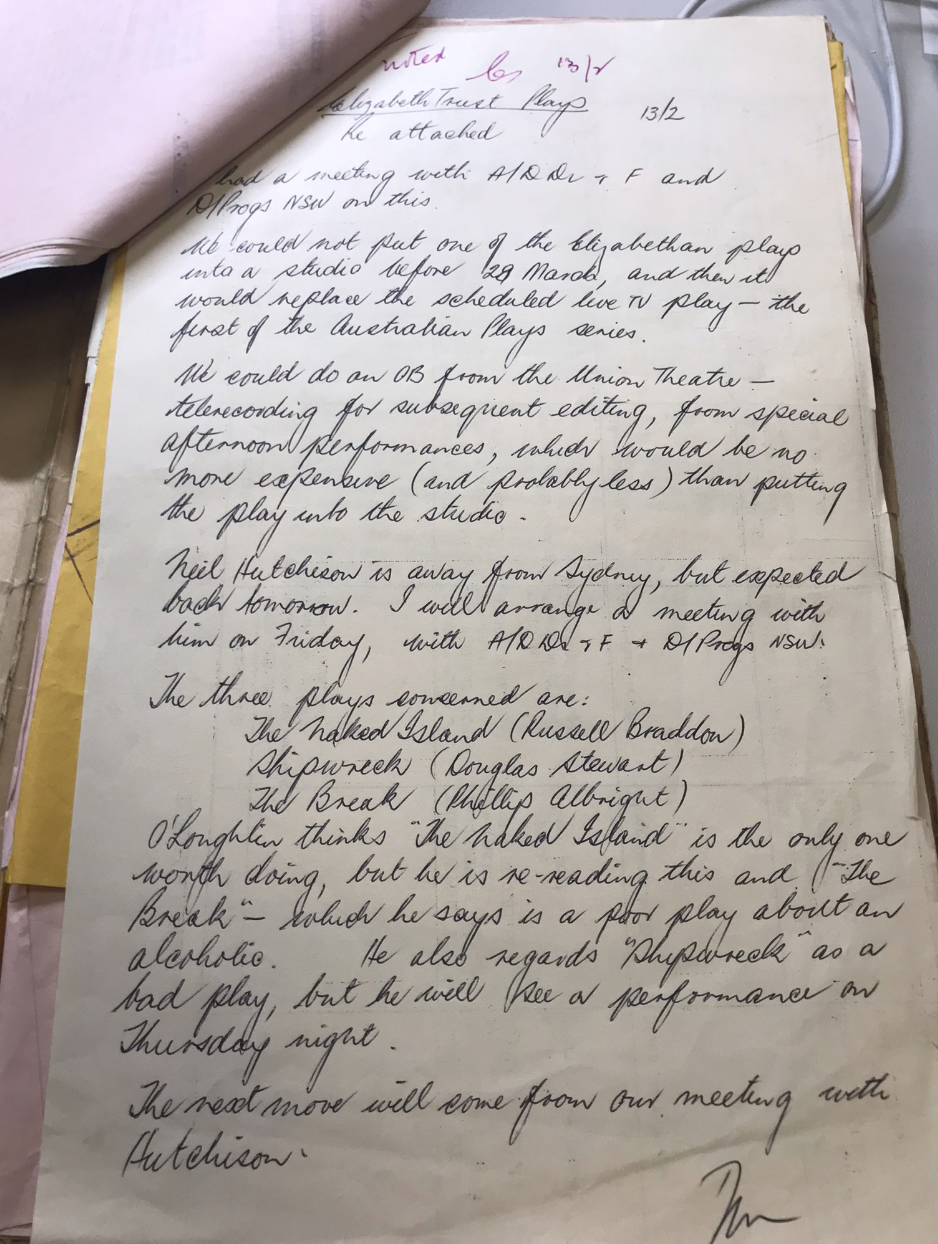 noted 13/2
Elizabeth Trust Plays 13/2
Re attached
had a meeting with A/D Dr + F and
D/Progs NSW on this.
We could not put one of the Elizabethan plays
into a studio before 29 March, and then it
would replace the scheduled live TV play — the
first of the Australian Plays series.
We could do an OB from the Union Theatre —
telerecording for subsequent editing, from special
afternoon performances, which would be no
more expensive (and probably less) than putting
the play into the studio.
Neil Hutchison is away from Sydney, but expected
back tomorrow. I will arrange a meeting with
him on Friday, with A/D Dr + F + D/Progs NSW.
The three plays concerned are:
The Naked Island (Russell Braddon)
Shipwreck (Douglas Stewart)
The Break (Phillip Albright)
O'Loghlin thinks "The Naked Island" is the only one
worth doing, but he is re-reading this and "The
Break" — which he says is a poor play about an
alcoholic. He also regards "Shipwreck" as a
bad play, but he will see a performance on
Thursday night.
The next move will come from our meeting with
Hutchison.